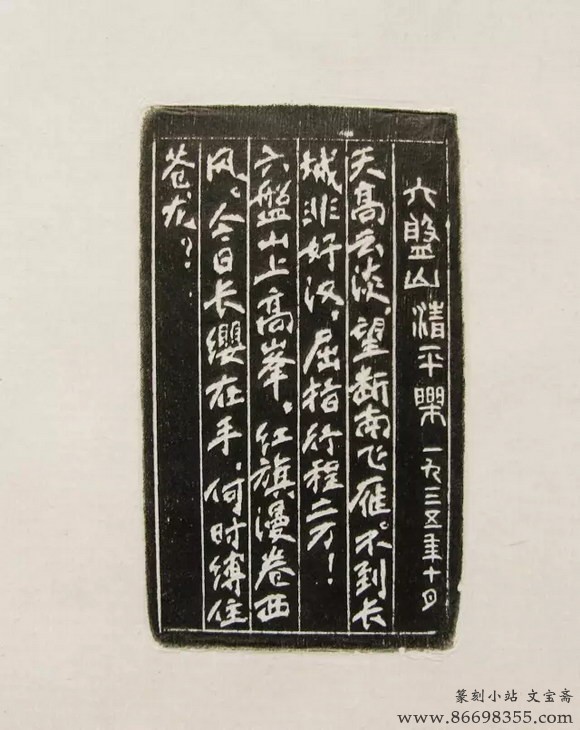 六盘山 清平乐 一九三五年十月
天高云淡，望断南飞雁。不到长
城非好汉，屈指行程二万！
六盤山上高峯，红旗漫卷西
风。今日长缨在手，何时缚住
苍龙？
篆刻小站 文宝斋
www.86698355.com